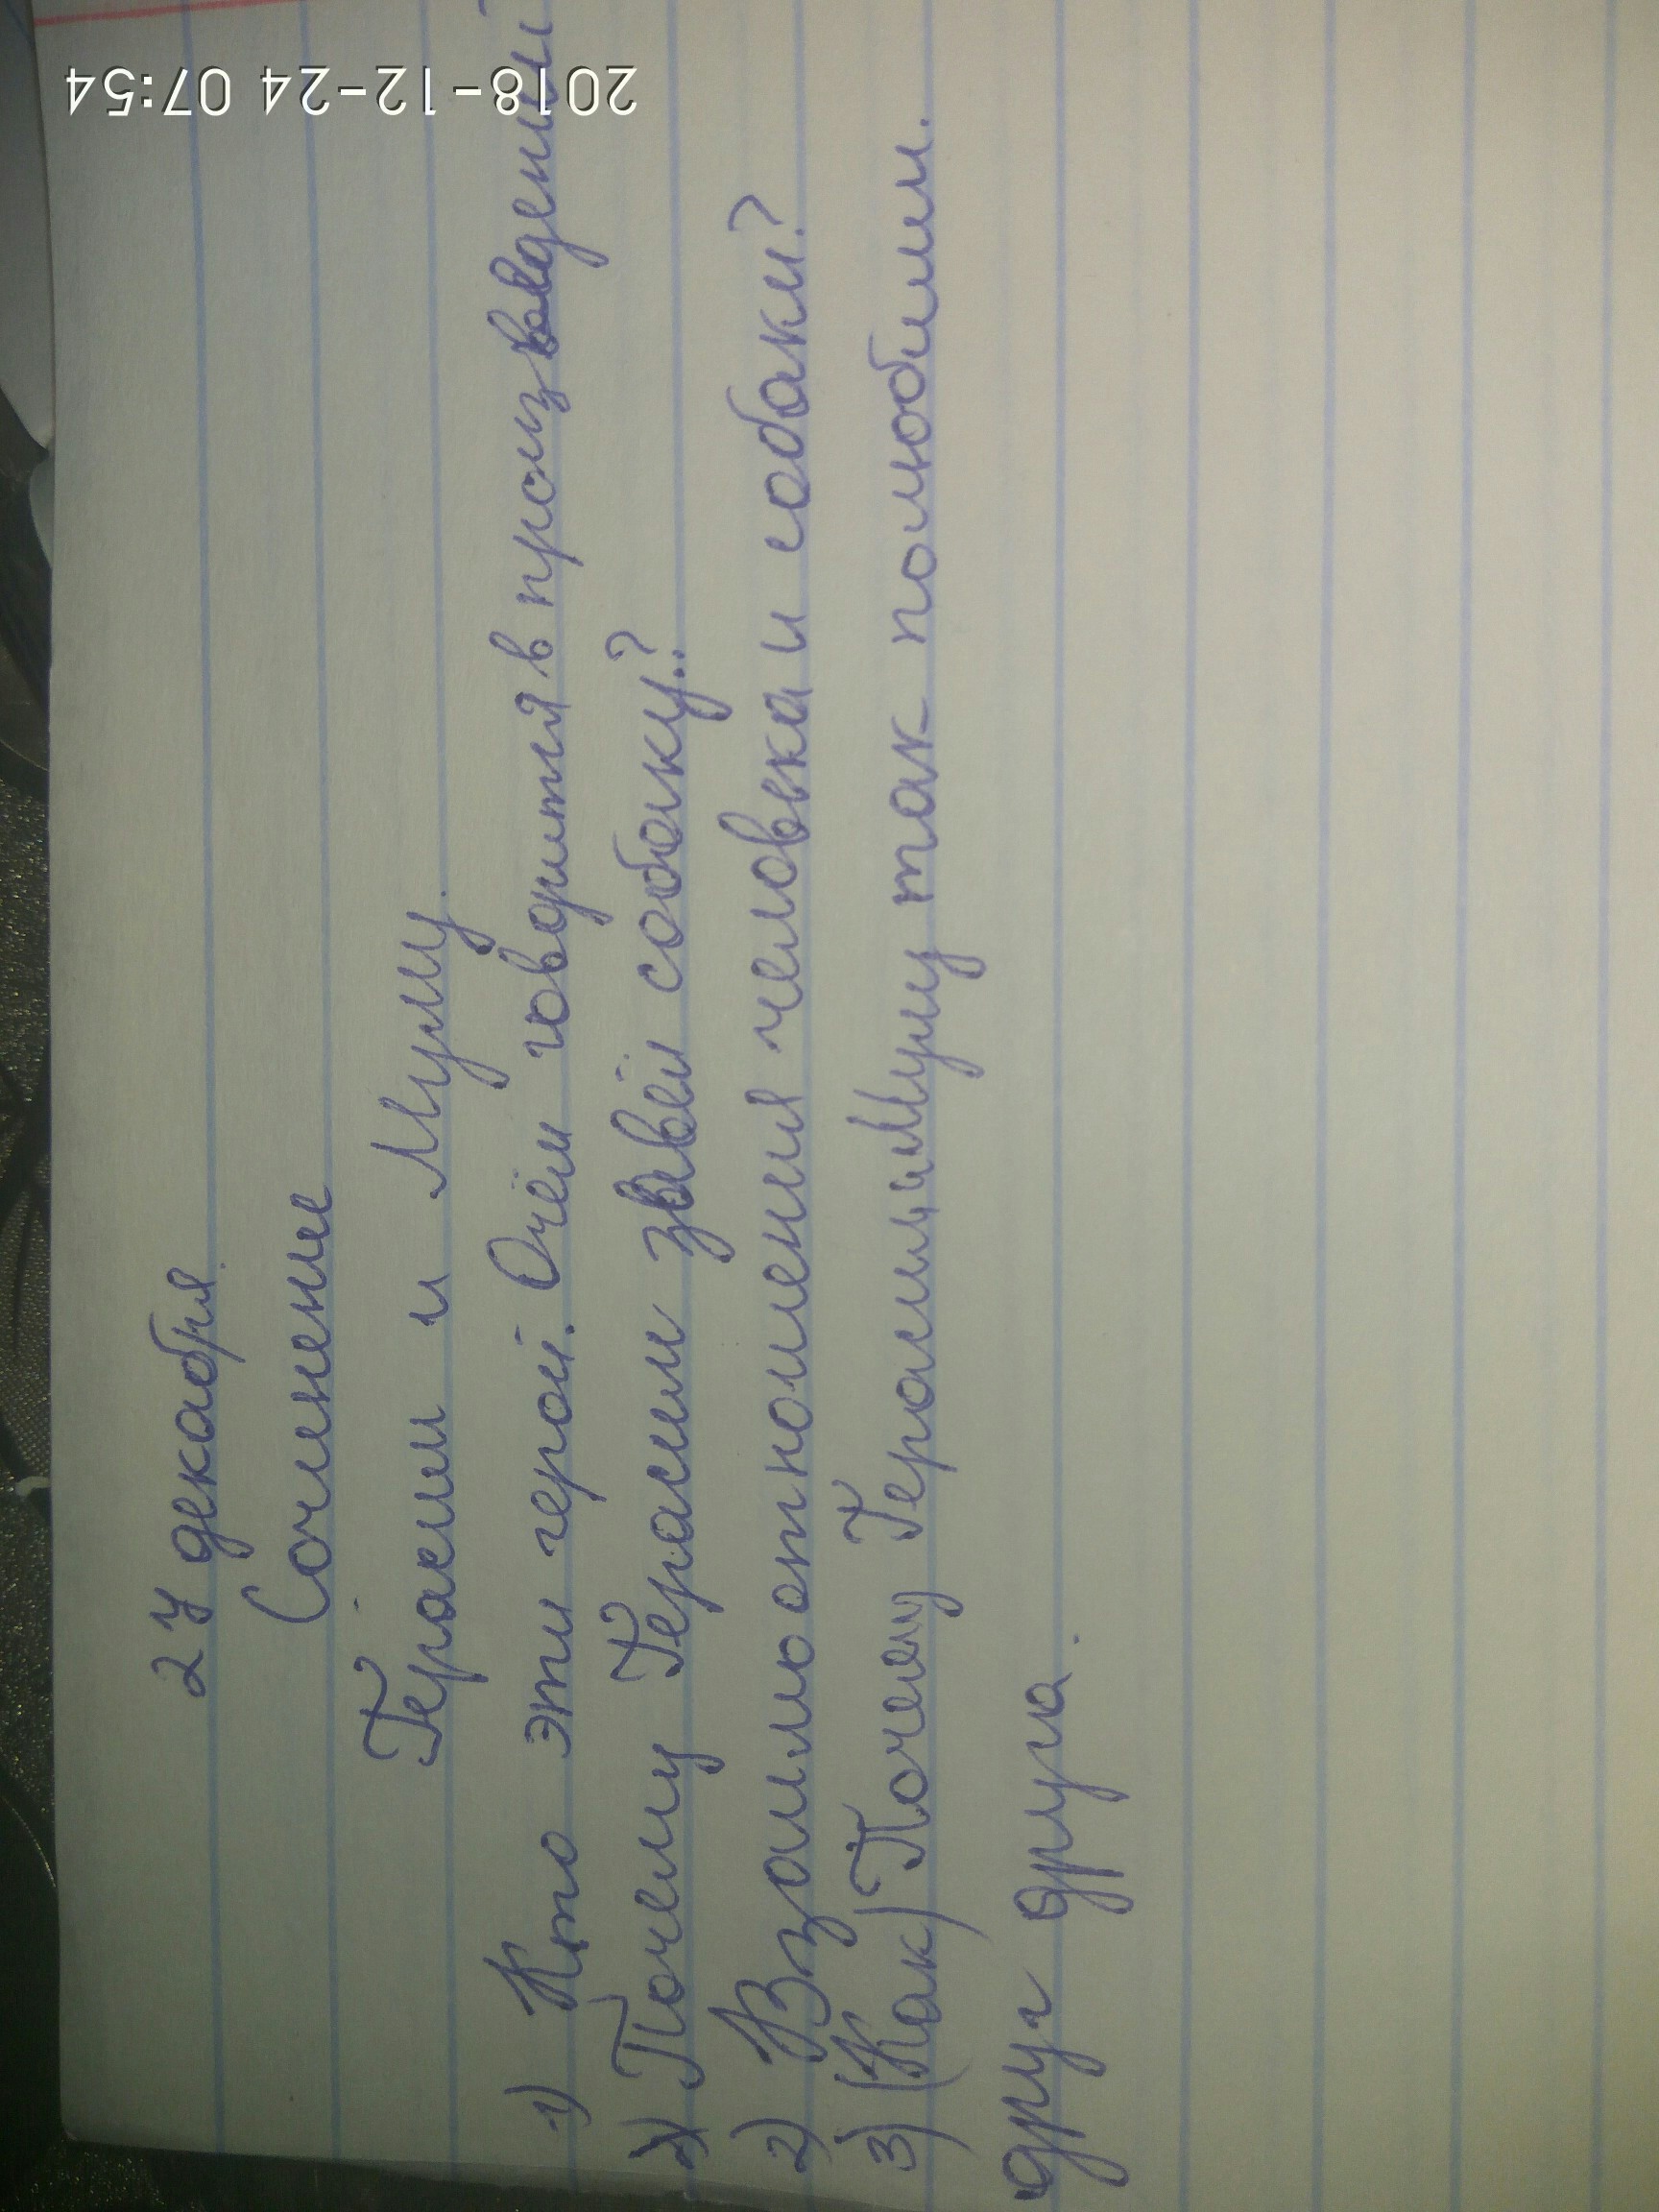 2018-12-24 07:54
27 декабря.
Сочинение
Герасим и Муму.
1) Кто эти герой. Очём говорится в произведений
2) Почему Герасим завёл собаку?
2) Взаимоотношения человека и собаки?
3) (Как) Почему Герасим и Муму так полюбили.
друг друга.